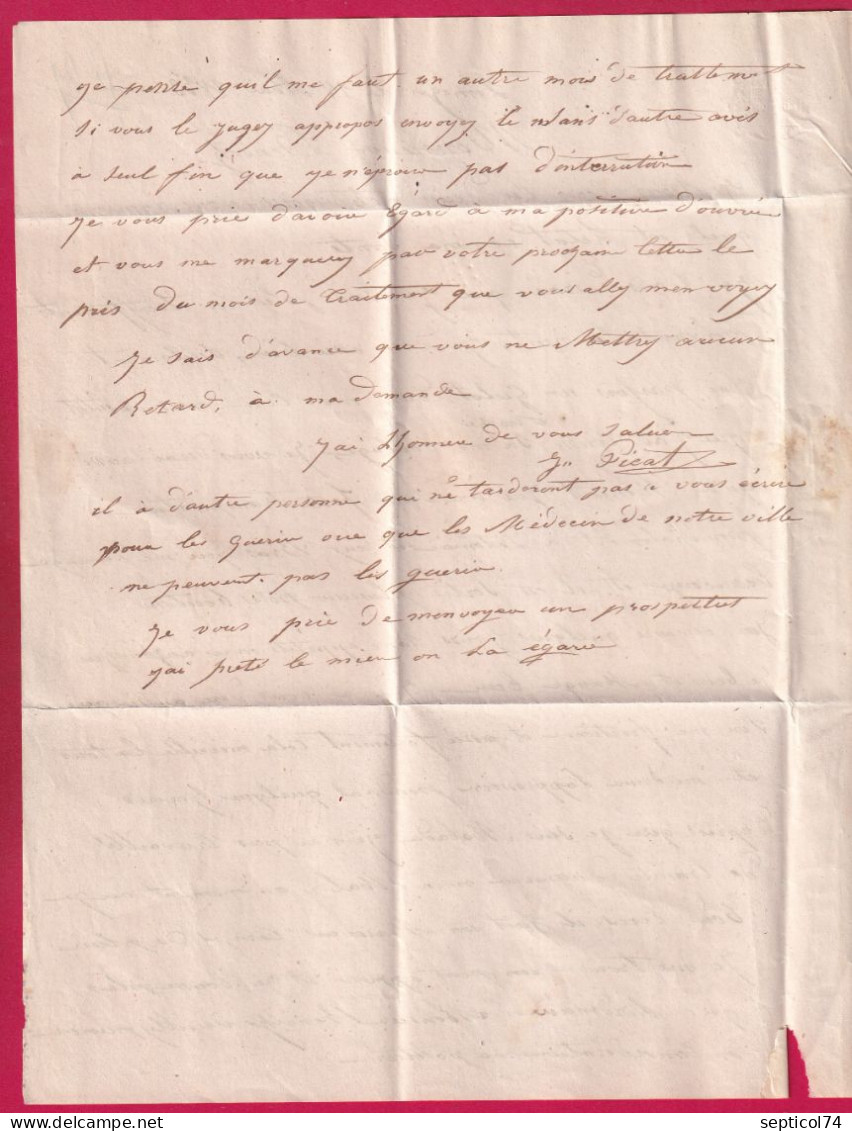 je pense qu'il me faut un autre mois de traitement
si vous le jugez appropos envoyez le sans d'autre avis
a seul fin que je n'éprouve pas d'interrution
Je vous prie d'avoir Egard à ma positive d'ouvrié
et vous me marquerez par votre prochain lettre le
pris du mois de traitement que vous allez menvoyez
Je sais d'avance que vous ne Mettez aucun
Retard, à ma demande
J'ai Lhonneur de vous saluer
Picat
il à d'autre personne qui ne tarderont pas a vous écrire
pour les Guerir vue que les Médecin de notre ville
ne peuvent pas les guerir
Je vous prie de menvoyer un prospettus
jai preté le mien on La égaré
septicol74